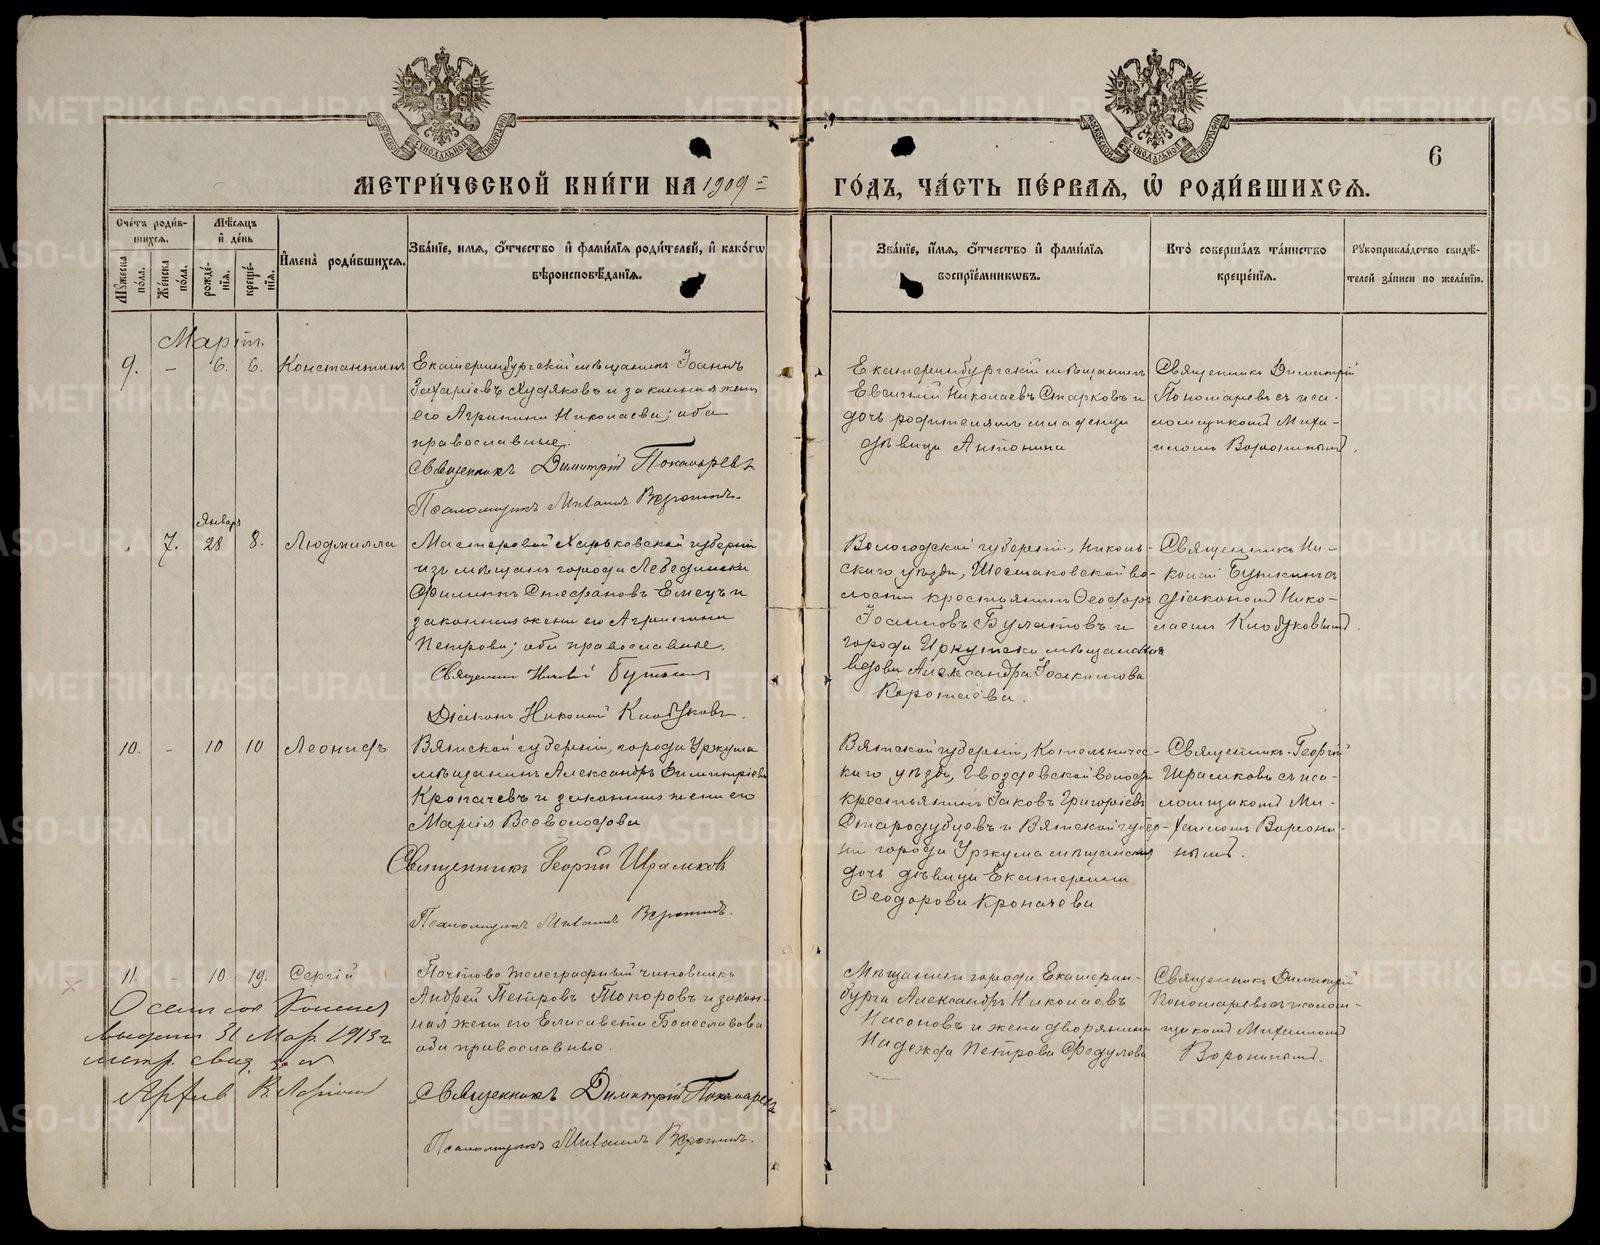 МЕТРИ́ЧЕСКОЙ КНИ́ГИ НА 1909 ГО́ДЪ, ЧА́СТЬ ПЕ́РВАЯ, Ѽ РОДИ́ВШИХСЯ.
6
Сче́тъ роди́в-
шихся.
Му́жеска по́ла.
Же́нска по́ла.
Мѣ́сяцъ
и҆ де́нь
рожде́-
нїя.
креще́-
нїя.
И҆мена̀ роди́вшихся.
Зва́нїе, и҆́мя, ѻ҆́тчество и҆ фами́лїя роди́телей, и҆ како́гѡ
вѣроисповѣ́данїя.
Зва́нїе, и҆́мя, ѻ҆́тчество и҆ фами́лїя
воспрїе́мникѡвъ.
Кто̀ соверша́лъ та́инство
креще́нїя.
Рꙋкоприкла́дство свидѣ́-
телей за́писи по жела́нїю.
Мартъ
9. - 6. 6. Константинъ
Екатеринбургскій мѣщанинъ Іоаннъ
Захаріевъ Худяковъ и законная жена
его Агрипина Николаева; оба
православные.
Священникъ Димитрій Пономаревъ
Псаломщикъ Михаилъ Воронинъ.
Екатеринбургскій мѣщанинъ
Евгеній Николаевъ Старковъ и
дочь родителямъ младенца
дѣвица Антонина
Священникъ Димитрій
Пономаревъ съ пса-
ломщикомъ Миха-
иломъ Воронинымъ.
Январь
7. 28 8. Людмилла
Мастеровой Харьковской губерніи
изъ мѣщанъ города Лебедянска
Филиппъ Стефановъ Емецъ и
законная жена его Агрипина
Петрова; оба православные.
Священникъ Николай
Діаконъ Николай Клобуковъ.
Вологодской губерніи, Николь-
скаго уѣзда, Шестаковской во-
лости крестьянинъ Ѳеодоръ
Іоанновъ Булатовъ и
города Иркутска мѣщанская
вдова Александра Іоакимова
Коротаева.
Священникъ Ни-
колай
діакономъ Нико-
лаемъ Клобуковымъ.
10. - 10 10 Леонидъ
Вятской губерніи, города Уржума
мѣщанинъ Александръ Димитріевъ
Кропачевъ и законная жена его
Марія Всеволодова
Священникъ Георгій Ирамиковъ
Псаломщикъ Михаилъ Воронинъ.
Вятской губерніи, Котельничес-
каго уѣзда, Гвоздевской волости
крестьянинъ Іаковъ Григоріевъ
Стародубцевъ и Вятской губер-
ніи города Уржума мѣщанская
дочь дѣвица Екатерина
Ѳеодорова Кропачева
Священникъ Георгій
съ пса-
ломщикомъ Ми-
хаиломъ Ворони-
нымъ.
11. - 10. 19. Сергій
Почтово телеграфный чиновникъ
Андрей Петровъ Топоровъ и закон-
ная жена его Елисавета Болеславова
оба православные.
Священникъ Димитрій Пономаревъ
Псаломщикъ Михаилъ Воронинъ.
Мѣщанинъ города Екатерин-
бурга Александръ Николаевъ
Насоновъ и жена дворянина
Надежда Петрова Федулова
Священникъ Димитрій
Пономаревъ съ псалом-
щикомъ Михаиломъ
Воронинымъ.
О семъ
выдано 31 Мар. 1913 г.
метр. свид. за №